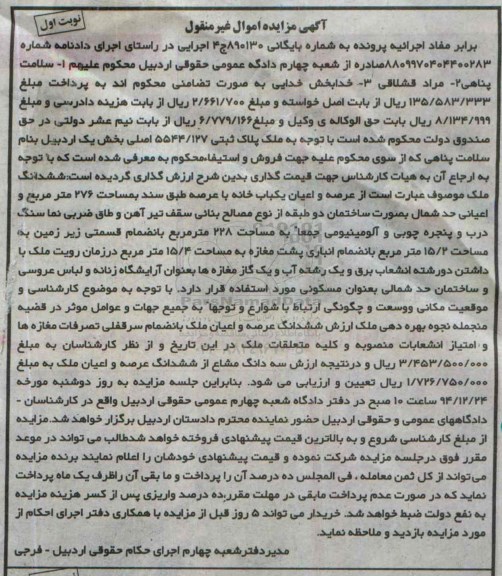 نوبت اول
آگهی مزایده اموال غیرمنقول
برابر مفاد اجرائیه پرونده به شماره بایگانی ۸۹۰۱۳۰ج۴ اجرایی در راستای اجرای دادنامه شماره
۸۸۰۹۹۷۰۴۰۴۴۰۰۲۸۳صادره از شعبه چهارم دادگه عمومی حقوقی اردبیل محکوم علیهم ۱- سلامت
پناهی۲- مراد قشلاقی ۳- خدابخش خدایی به صورت تضامنی محکوم اند به پرداخت مبلغ
۱۳۵/۵۸۳/۳۳۳ ریال از بابت اصل خواسته و مبلغ ۲/۶۶۱/۷۰۰ ریال از بابت هزینه دادرسی و مبلغ
۸/۱۳۴/۹۹۹ ریال بابت حق الوکاله ی وکیل و مبلغ۶/۷۷۹/۱۶۶ ریال از بابت نیم عشر دولتی در حق
صندوق دولت محکوم شده است با توجه به ملک پلاک ثبتی ۵۵۴۴/۱۲۷ اصلی بخش یک اردبیل بنام
سلامت پناهی که از سوی محکوم علیه جهت فروش و استیفاءمحکوم به معرفی شده است که با توجه
به ارجاع آن به هیات کارشناس جهت قیمت گذاری بدین شرح ارزش گذاری گردیده است:ششدانگ
ملک موصوف عبارت است از عرصه و اعیان یکباب خانه با عرصه طبق سند بمساحت ۲۷۶ متر مربع و
اعیانی حد شمال بصورت ساختمان دو طبقه از نوع مصالح بنائی سقف تیر آهن و طاق ضربی نما سنگ
درب و پنجره چوبی و آلومینیومی جمعا به مساحت ۲۲۸ مترمربع بانضمام قسمتی زیر زمین به
مساحت ۱۵/۲ متر مربع بانضمام انباری پشت مغازه به مساحت ۱۵/۴ متر مربع درزمان رویت ملک با
داشتن دورشته انشعاب برق و یک رشته آب و یک گاز مغازه ها بعنوان آرایشگاه زنانه و لباس عروسی
و ساختمان حد شمالی بعنوان مسکونی مورد استفاده قرار دارد. با توجه به موضوع کارشناسی و
موقعیت مکانی ووسعت و چگونگی ارتباط با شوارع و توجها به جمیع جهات و عوامل موثر در قضیه
منجمله نحوه بهره دهی ملک ارزش ششدانگ عرصه و اعیان ملک بانضمام سرقفلی تصرفات مغازه ها
و امتیاز انشعابات منصوبه و کلیه متعلقات ملک در این تاریخ و از نظر کارشناسان به مبلغ
۳/۴۵۳/۵۰۰/۰۰۰ ریال و درنتیجه ارزش سه دانگ مشاع از ششدانگ عرصه و اعیان ملک به مبلغ
۱/۷۲۶/۷۵۰/۰۰۰ ریال تعیین و ارزیابی می شود. بنابراین جلسه مزایده به روز دوشنبه مورخه
۹۴/۱۲/۲۴ ساعت ۱۰ صبح در دفتر دادگاه شعبه چهارم عمومی حقوقی اردبیل واقع در کارشناسان -
دادگاههای عمومی و حقوقی اردبیل حضور نماینده محترم دادستان اردبیل برگزار خواهد شد.مزایده
از مبلغ کارشناسی شروع و به بالاترین قیمت پیشنهادی فروخته خواهد شدطالب می تواند در موعد
مقرر فوق درجلسه مزایده شرکت نموده و قیمت پیشنهادی خودشان را اعلام نمایند برنده مزایده
می‌تواند از کل ثمن معامله ، فی المجلس ده درصد آن را پرداخت و ما بقی آن راظرف یک ماه پرداخت
نماید که در صورت عدم پرداخت مابقی در مهلت مقرر،ده درصد واریزی پس از کسر هزینه مزایده
به نفع دولت ضبط خواهد شد. خریدار می تواند ۵ روز قبل از مزایده با همکاری دفتر اجرای احکام از
مورد مزایده بازدید و ملاحظه نماید.
مدیردفترشعبه چهارم اجرای حکام حقوقی اردبیل - فرجی